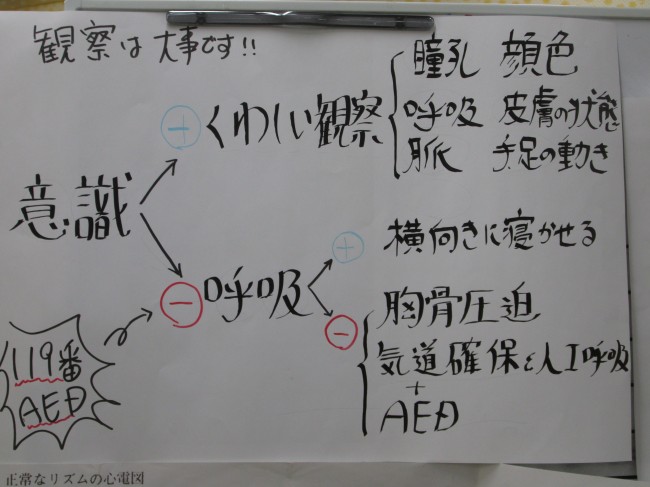 観察は大事です!!
意識
⊕ くわしい観察
瞳孔 顔色
呼吸 皮膚の状態
脈 手足の動き
⊖ 呼吸
⊕ 横向きに寝かせる
⊖ 胸骨圧迫
気道確保と人工呼吸
+
AED
119番
AED
正常なリズムの心電図